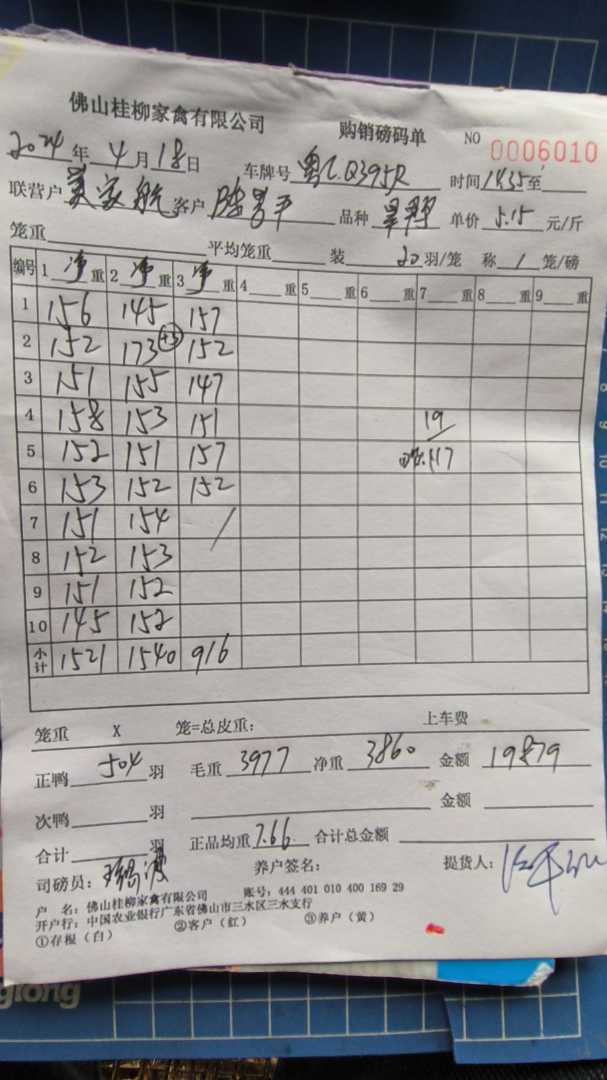 佛山桂柳家禽有限公司 购销磅码单 NO 0006010
2024年4月18日 车牌号 粤L Q395R 时间1435至
联营户 家航 客户 陈 平 品种 单价 5.15 元/斤
笼重 平均笼重 装 20 羽/笼 称 1 笼/磅
编号 1 净 重 2 净 重 3 净 重 4 重 5 重 6 重 7 重 8 重 9 重
1 156 145 157
2 152 173 +3 152
3 151 155 147
4 158 153 151 19
5 152 151 157 117
6 153 152 152
7 151 154 /
8 152 153
9 151 152
10 145 152
小计 1521 1540 916
笼重 X 笼=总皮重: 上车费
正鸭 504 羽 毛重 3977 净重 3860 金额 19879
次鸭 羽 金额
合计 羽 正品均重 7.66 合计总金额
司磅员: 养户签名: 提货人:
户 名: 佛山桂柳家禽有限公司 账号: 444 401 010 400 169 29
开户行: 中国农业银行广东省佛山市三水区三水支行
①存根(白) ②客户(红) ③养户(黄)
glong